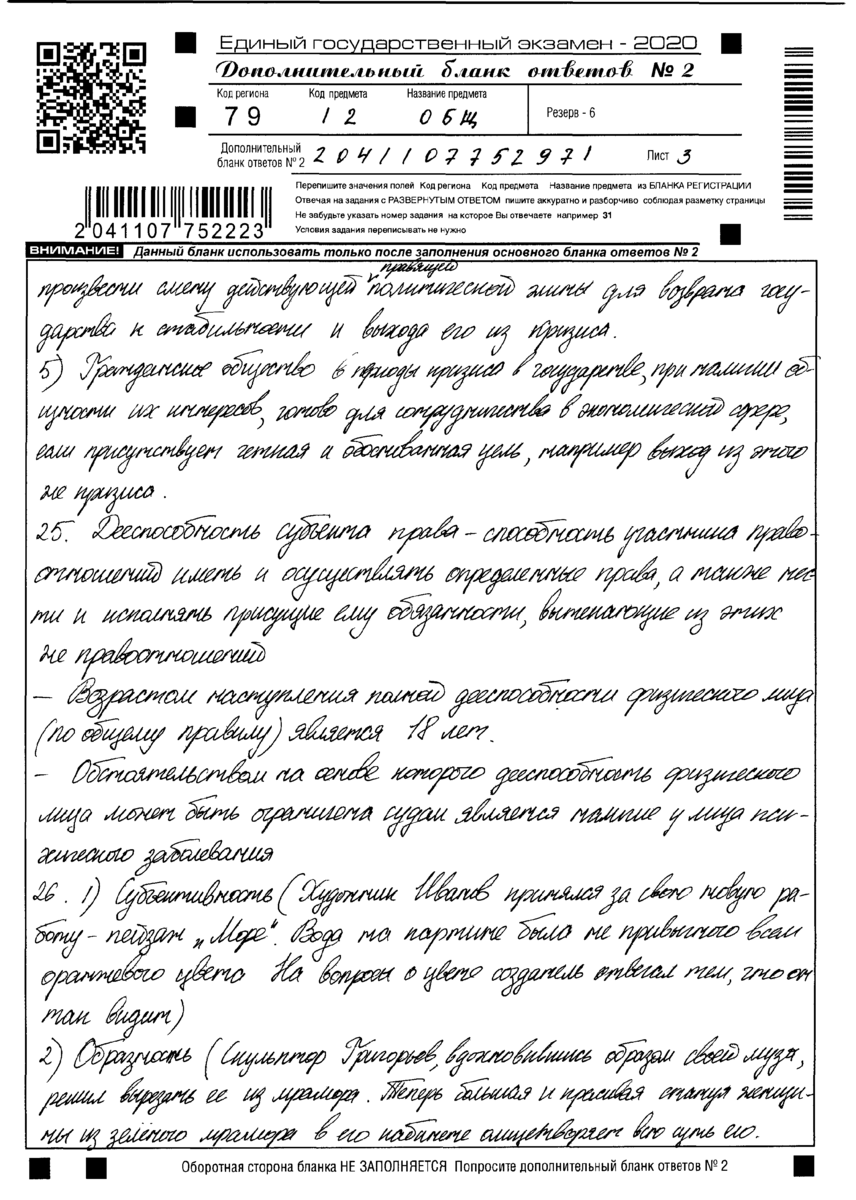 Единый государственный экзамен - 2020
Дополнительный бланк ответов № 2
Код региона Код предмета Название предмета
79 12 ОБЩ Резерв - 6
Дополнительный бланк ответов № 2 2041107752971 Лист 3
Перепишите значения полей Код региона Код предмета Название предмета из БЛАНКА РЕГИСТРАЦИИ
Отвечая на задания с РАЗВЕРНУТЫМ ОТВЕТОМ пишите аккуратно и разборчиво соблюдая разметку страницы
Не забудьте указать номер задания на которое Вы отвечаете например 31
Условия задания переписывать не нужно
2041107 752223
ВНИМАНИЕ! Данный бланк использовать только после заполнения основного бланка ответов № 2
правящей
произвести смену действующей политической элиты для возврата госу-
дарства к стабильности и выхода его из кризиса.
5) Гражданское общество в периоды кризиса в государстве, при наличии об-
щности их интересов, готово для сотрудничества в экономической сфере,
если присутствует четкая и обоснванная цель, например выход из этого
же кризиса.
25. Дееспособность субъекта права – способность участника право-
отношений иметь и осуществлять определенные права, а также нес-
ти и исполнять присущие ему обязанности, вытекающие из этих
же правоотношений
– Возрастом наступления полной дееспособности физического лица
(по общему правилу) является 18 лет.
– Обстоятельством на основе которого дееспособность физического
лица может быть ограничена судом является наличие у лица пси-
хического заболевания
26. 1) Субъективность (Художник Иванов принялся за свою новую ра-
боту – пейзаж „Море". Вода на картине была не привычного всем
оранжевого цвета На вопросы о цвете создатель отвечал тем, что он
так видит)
2) Образность (Скульптор Григорьев, вдохновившись образом своей музы,
решил вырезать ее из мрамора. Теперь большая и красивая статуя женщи-
ны из зеленого мрамора в его кабинете олицетворяет всю суть его.
Оборотная сторона бланка НЕ ЗАПОЛНЯЕТСЯ Попросите дополнительный бланк ответов № 2